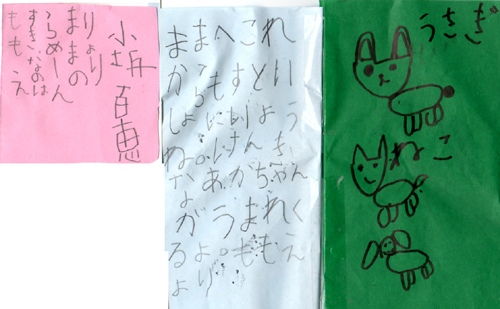 ももえ
すきなのは
らめーん
ままの
りょり
百恵
ままへこれ
からもずとい
しょにいよう
ね。げんき
なあかちゃん
がうまれく
るよ。ももえ
より
うさぎ
ねこ